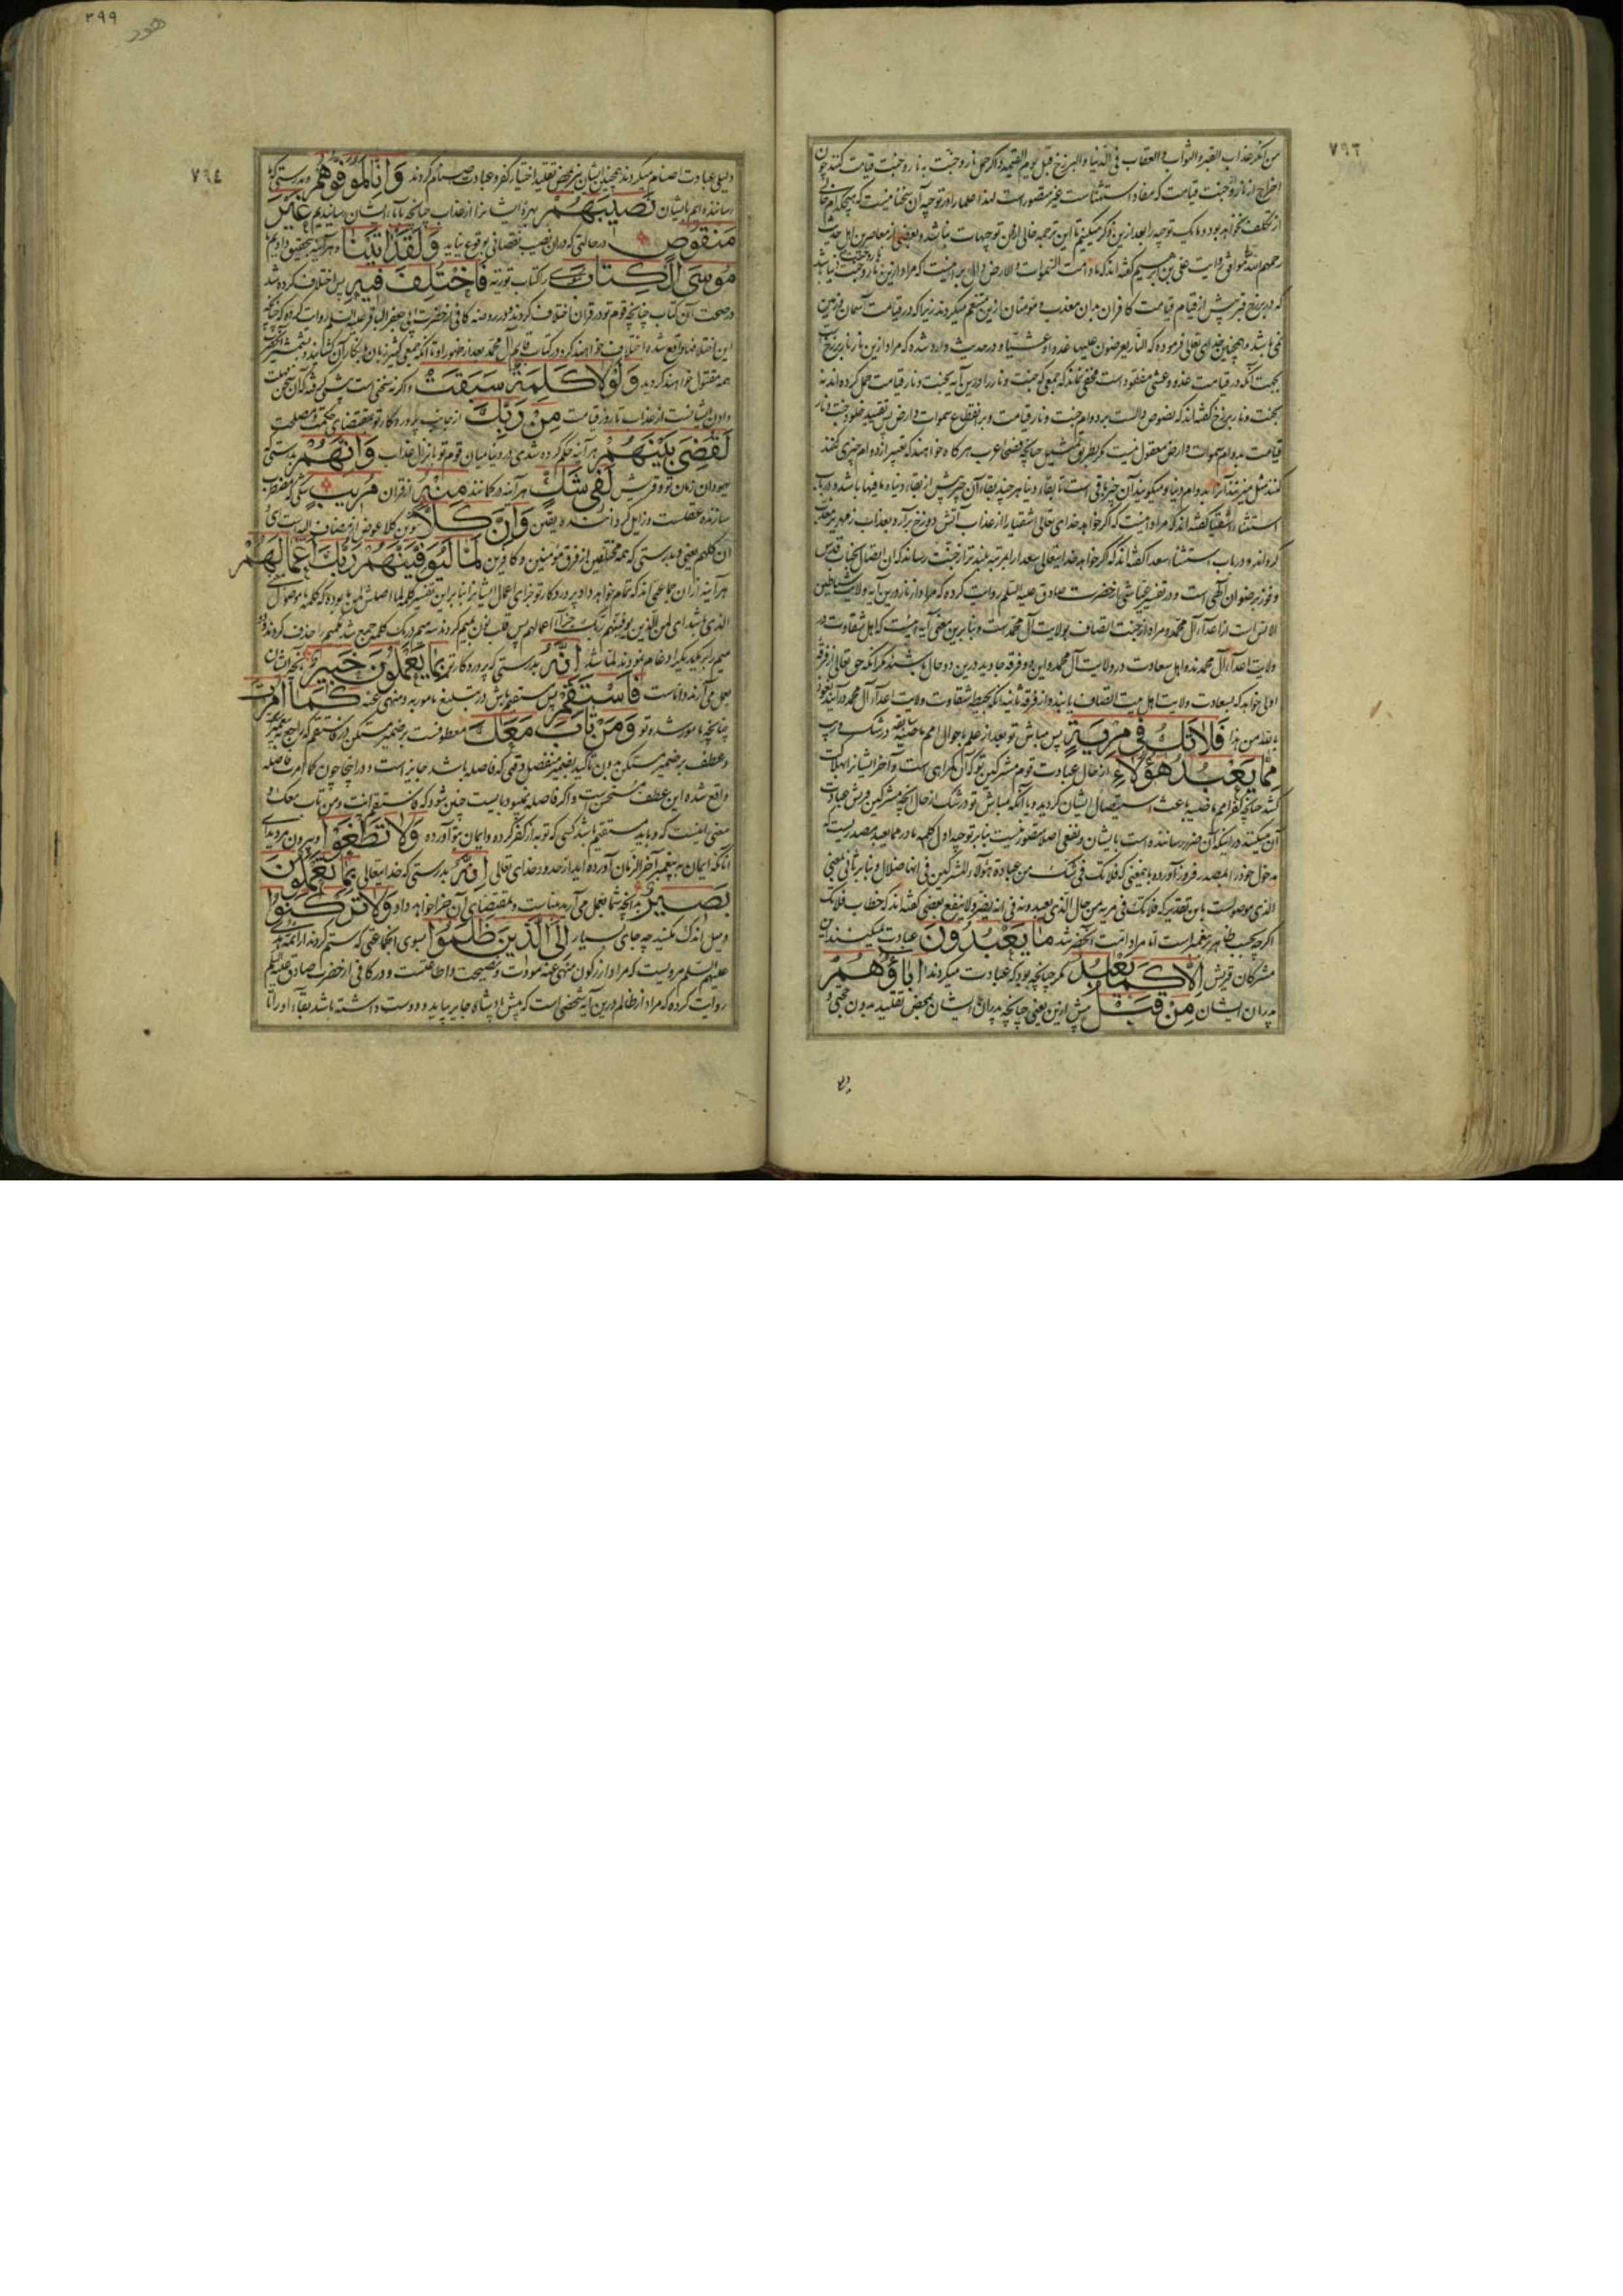 ٧٩٦
من انکر عذاب القبر و الثواب و العقاب فی الدنیا و البرزخ قبل یوم القیمة و اگر حمل نار و جنت به نار و جنت قیامت کنند چون
اخراج از نار و جنت قیامت که مفاد استثناست غیر مقصور است لهذا علما را در توجیه آن سخنها نیست که هیچکدام خالی
از تکلف نخواهد بود و ما یک توجیه را بعد ازین ذکر میکنیم تا این ترجمه خالی ازین توجیهات نباشد و بعضی از معاصرین اهل حدیث
رحمهم الله موافق روایت علی بن ابرهیم گفته‌اند که مادامت السموات و الارض دال بر اینست که مراد ازین نار و جنت دنیا باشد
که در برزخ قبر پیش از قیام قیامت کافران بدان معذب و مؤمنان ازین متنعم میگردند زیرا که در قیامت آسمان و زمین
نمی باشد و همچنین خدای تعالی فرموده که النار یعرضون علیها غدوا و عشیا و در حدیث وارد شده که مراد ازین نار نار برزخ
بجهت آنکه در قیامت غدو و عشی مفقود است مخفی نماند که جمعی که جنت و نار را درین آیه بجنت و نار قیامت حمل کرده‌اند نه
بجنت و نار برزخ گفته‌اند که نصوص دالست بر دوام جنت و نار قیامت و بر انقطاع سموات و ارض پس تقیید خلود جنت و نار
قیامت بدوام سموات و ارض معقول نیست مگر بطریق تمثیل چنانچه فصحاء عرب هرگاه خواهند که تعبیر از دوام چیزی کنند
استثناء اشقیا گفته‌اند که مراد اینست که اگر خواهد خدای تعالی اشقیا را از عذاب آتش دوزخ برآرد و بعذاب زمهریر معذب
گرداند و در باب استثناء سعدا گفته‌اند که اگر خواهد خدایتعالی سعدا را بمرتبه بلندتر از جنت رساند که ان اتصال بجناب قدس
و فوز برضوان الهی است و در تفسیر عیاشی از حضرت صادق علیه السلم روایت کرده که مراد از نار درین آیه ولایت شیاطین
الانس است از اعداء آل محمد و مراد از جنت اتصاف بولایت آل محمد است و بنابرین معنی آیه اینست که اهل شقاوت در
ولایت اعداء آل محمدند و اهل سعادت در ولایت آل محمد و این دو فرقه جاویدند درین دو حال باشند مگر آنکه حق تعالی از فرقه
اولی خواهد که بسعادت ولایت اهل بیت اتصاف یابند و از فرقه ثانیه آنکه بحیطه شقاوت ولایت اعداء آل محمد درآیند نعوذ
بالله من هذا فَلَا تَكُ فِي مِرْيَةٍ پس مباش تو بعد از علم باحوال امم ماضیه سابقه در شک و ریب
مِمَّا يَعْبُدُ هٰؤُلَاءِ از حال عبادت قوم مشرکین تو که آن گمراهی است و آخر ایشانرا بهلاکت
کشد چنانچه کفر امم ماضیه باعث استیصال ایشان گردید و یا آنکه مباش تو در شک از حال آنچه مشرکین قریش عبادت
آن میکنند در اینکه آن ضرر رساننده است بایشان و نفعی اصلا متصور نیست بنابر توجیه اول کلمه ما در مما یعبد مصدریست که
مدخول خود را بمصدر فرو آورده باینمعنی که فلا تک فی شک من عبادة هؤلاء المشرکین فی انها ضلال و بنابر ثانی بمعنی
الذی موصولست باین تقدیر که فلا تک فی مریة من حال الذی یعبدونه فی انه یضر و لا ینفع بعضی گفته‌اند که خطاب فلا تک
اگرچه بحسب ظاهر پیغمبر است اما مراد امت آنحضرتند مَا يَعْبُدُونَ عبادت نمیکنند این
مشرکان قریش إِلَّا كَمَا يَعْبُدُ مگر چنانچه بود که عبادت میکردند اٰبَاؤُهُمْ
پدران ایشان مِنْ قَبْلُ پیش ازین یعنی چنانچه پدران ایشان بمحض تقلید بدون حجتی و
٣٩٩
هود
٧٩٤
دلیلی عبادت اصنام میکردند همچنین ایشان نیز محض تقلید اختیار کفر و عبادت اصنام کردند وَإِنَّا لَمُوَفُّوهُمْ و بدرستی که ما
رسانندهایم بایشان نَصِيبَهُمْ بهرهٔ ایشانرا از عذاب چنانچه بآباء ایشان رسانیدیم غَيْرَ
مَنْقُوصٍ در حالتی که دران نصیب نقصانی بوقوع نیاید وَلَقَدْ اٰتَيْنَا و هر آینه بتحقیق دادیم ما
مُوسَى الْكِتَابَ موسی را کتاب توریة فَاخْتُلِفَ فِيهِ پس اختلاف کرده شد
در صحت آن کتاب چنانچه قوم تو در قران اختلاف کردند و در روضه کافی از حضرت ابی جعفر الباقر علیه السلم روایت کرده که چنانچه
این اختلافها واقع شده اختلاف خواهند کرد در کتاب قایم آل محمد بعد از ظهور او تا آنکه جمعی کثیر زبان بانکار آن گشایند و بشمشیر آنحضرت
همه مقتول خواهند گردید وَلَوْلَا كَلِمَةٌ سَبَقَتْ و اگر نه سخنی است پیشی گرفته که آن سخن مهلت
دادن ایشانست از عذاب تا روز قیامت مِنْ رَبِّكَ از جانب پروردگار تو بمقتضای حکمت و مصلحت
لَقُضِيَ بَيْنَهُمْ هر آینه حکم کرده شدی در دنیا میان قوم تو بانزال عذاب وَإِنَّهُمْ و بدرستی که
یهودان زمان تو و قریش لَفِي شَكٍّ هر آینه در گمانند مِنْهُ از قران مُرِيبٍ شکی که مضطرب
سازنده عقلست و زایل گرداننده یقین وَإِنَّ كُلًّا تنوین کلا عوض از مضاف الیه است ای
ان کلهم یعنی و بدرستی که همه مختلفین از فرق مؤمنین و کافرین لَمَّا لَيُوَفِّيَنَّهُمْ رَبُّكَ أَعْمَالَهُمْ
هر آینه ازان جماعتی‌اند که تمام خواهد داد پروردگار تو جزای اعمال ایشانرا بنابر این تفسیر کلمه لما اصلش لمن ما بوده که کلمه ما موصول
الذی باشد ای لمن الذین یوفینهم ربک جزاء اعمالهم پس قلب نون بمیم کردند سه میم در یک کلمه جمع شد یک میم را حذف کردند و دو
میم را بر یکدیگر ادغام نمودند لما شد إِنَّهُ بدرستی که پروردگار تو بِمَا يَعْمَلُونَ خَبِيرٌ بآنچه ایشان
بعمل می‌آرند داناست فَاسْتَقِمْ پس مستقیم باش در تبلیغ مامور به و منهی عنه كَمَا أُمِرْتَ
چنانچه مامور شده تو وَمَنْ تَابَ مَعَكَ معطوفست بر ضمیر مستکن در فاستقم که راجع به پیغمبر است
و عطف بر ضمیر مستکن بدون تاکید بضمیر منفصل وقتی که فاصله باشد جایز است و در اینجا چون کما امرت فاصله
واقع شده این عطف مستحسن است و اگر فاصله نمیبود بایست چنین شود که فاستقم انت و من تاب معک و
معنی اینست که و باید مستقیم باشد کسی که توبه از کفر کرده و ایمان بتو آورده وَلَا تَطْغَوْا و بیرون مروید ای
آنانکه ایمان به پیغمبر آخر الزمان آورده‌اید از حدود خدای تعالی إِنَّهُ بدرستی که خدایتعالی بِمَا تَعْمَلُونَ
بَصِيرٌ بآنچه شما بعمل می‌آرید بیناست و بمقتضای آن جزا خواهد داد وَلَا تَرْكَنُوا
و میل اندک مکنید چه جای بسیار إِلَى الَّذِينَ ظَلَمُوا بسوی آنجماعتی که ستم کردند از ائمه هدی
علیهم السلم مرویست که مراد از رکون منهی عنه مودت و نصیحت و اطاعتست و در کافی از حضرت صادق علیه السلم
روایت کرده که مراد از ظالم درین آیه شخصی است که پیش پادشاه جایر بیاید و دوست داشته باشد بقاء او را تا